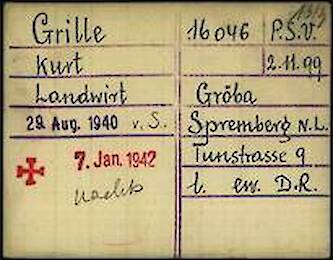 Grille 16046 P.S.V.
Kurt 2.11.99
Landwirt Gröba
29. Aug. 1940 v. S. Spremberg N.L.
7. Jan. 1942 Tunstrasse 9
nachts l. ew. D.R.